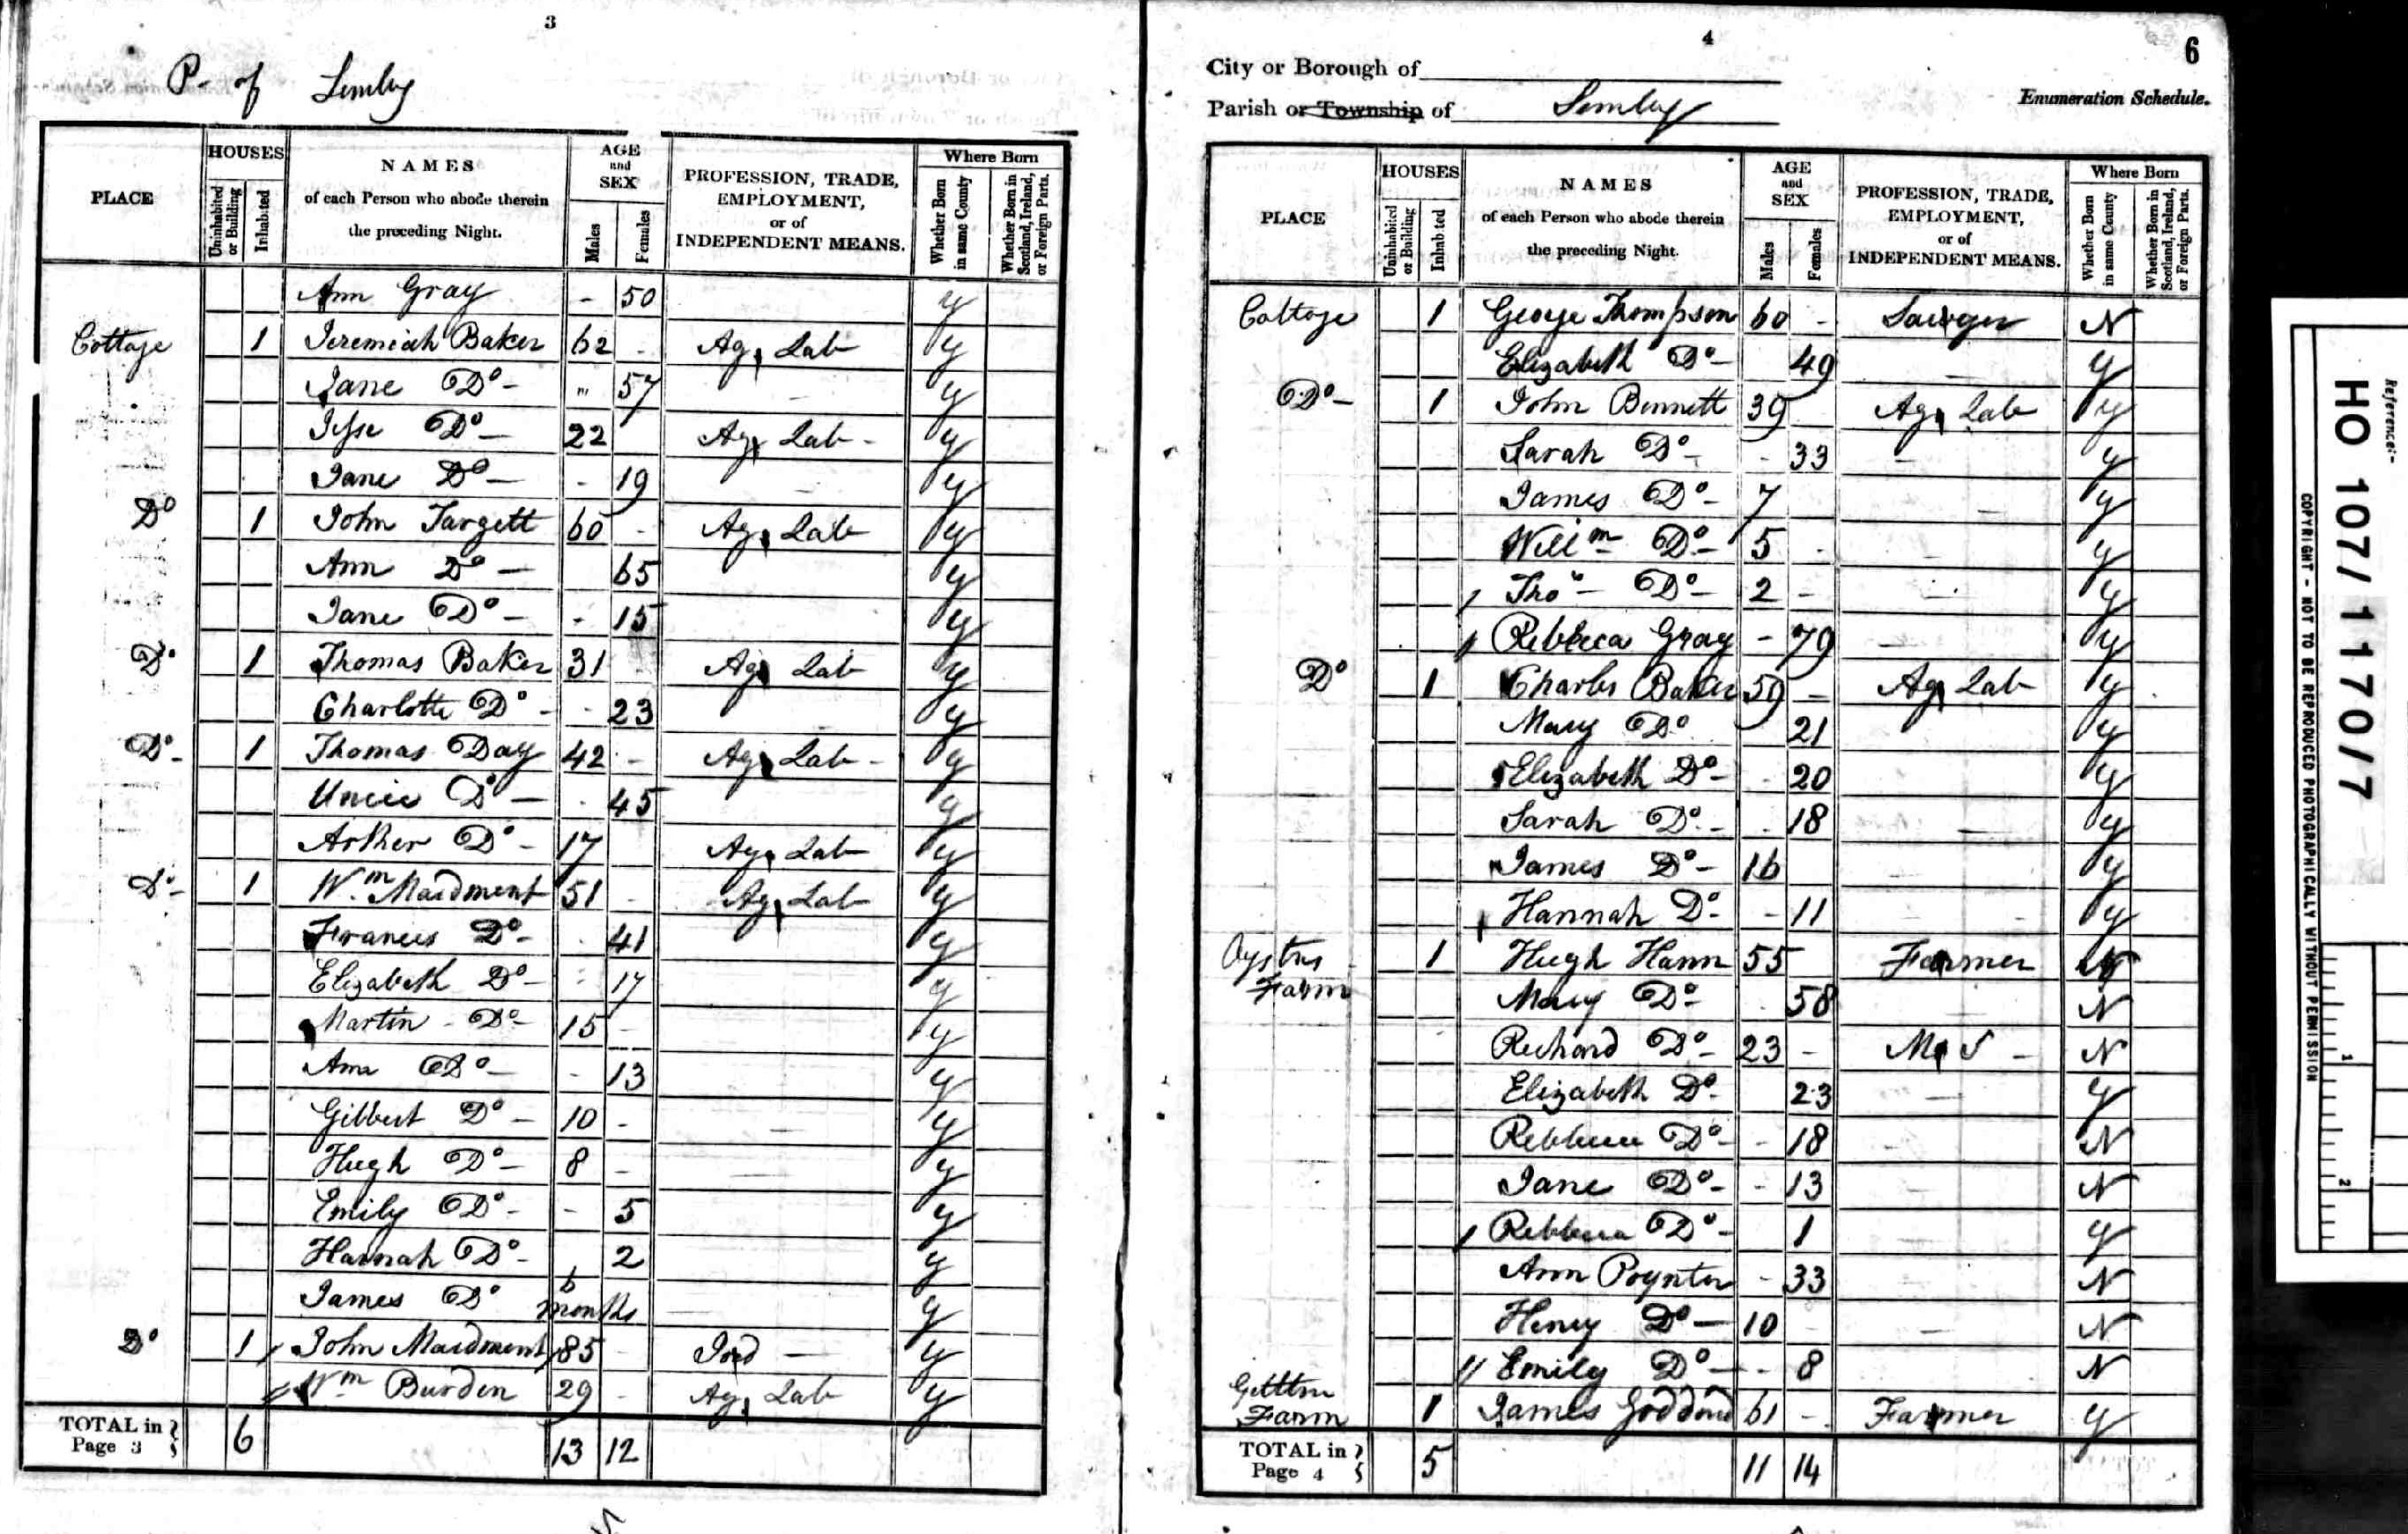 3
P. of Semley
PLACE
HOUSES
Uninhabited or Building
Inhabited
NAMES
of each Person who abode therein
the preceding Night.
AGE
and
SEX
Males
Females
PROFESSION, TRADE,
EMPLOYMENT,
or of
INDEPENDENT MEANS.
Where Born
Whether Born in same County
Whether Born in Scotland, Ireland, or Foreign Parts.
Ann Gray - 50 y
Cottage 1 Jeremiah Baker 62 - Ag. Lab y
Jane Do - " 57 - y
Jesse Do - 22 Ag. Lab - y
Jane Do - - 19 - y
Do 1 John Targett 60 - Ag. Lab y
Ann Do - 65 y
Jane Do - - 15 y
Do 1 Thomas Baker 31 Ag. Lab y
Charlotte Do - - 23 y
Do - 1 Thomas Day 42 - Ag. Lab - y
Do - 45 y
Do - 17 Ag. Lab y
Do - 1 Wm Maidment 51 - Ag. Lab y
Frances Do - - 41 y
Elizabeth Do - - 17 y
Martin - Do - 15 - y
Ann Do - - 13 y
Gilbert Do - 10 - y
Hugh Do - 8 - y
Emily Do - - 5 y
Hannah Do - 2 y
James Do 6 months y
Do 1 John Maidment 85 - Ind - y
Wm Burden 29 - Ag. Lab y
TOTAL in Page 3 6 13 12
4
6
City or Borough of
Parish or Township of Semley
Enumeration Schedule.
PLACE
HOUSES
Uninhabited or Building
Inhabited
NAMES
of each Person who abode therein
the preceding Night.
AGE
and
SEX
Males
Females
PROFESSION, TRADE,
EMPLOYMENT,
or of
INDEPENDENT MEANS.
Where Born
Whether Born in same County
Whether Born in Scotland, Ireland, or Foreign Parts.
Cottage 1 George Thompson 60 - Sawyer N
Elizabeth Do - 49 - y
Do - 1 John Bennett 39 Ag. Lab y
Sarah Do - - 33 - y
James Do - 7 y
Willm Do - 5 - y
Thos Do - 2 - - y
Rebbeca Gray - 79 - y
Do 1 Charles Baker 59 - Ag. Lab y
Mary Do 21 y
Elizabeth Do - - 20 y
Sarah Do - - 18 - y
James Do - 16 y
Hannah Do - - 11 - y
Oysters Farm 1 Hugh Hann 55 Farmer N
Mary Do - 58 N
Richard Do - 23 - M S - N
Elizabeth Do - 23 - y
Rebbecca Do - - 18 - N
Jane Do - - 13 N
Rebbecca Do - 1 y
Ann Poynter - 33 N
Henry Do - 10 - N
Emily Do - - 8 N
Farm 1 James Goddard 61 - Farmer y
TOTAL in Page 4 5 11 14
Reference:-
HO 107/1170/7
COPYRIGHT - NOT TO BE REPRODUCED PHOTOGRAPHICALLY WITHOUT PERMISSION
1
2